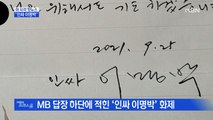 "인싸 이명박"
위해서도 기도 하겠습니다
2021. 9. 28
인싸 이명박
MB 답장 하단에 적힌 '인싸 이명박' 화제